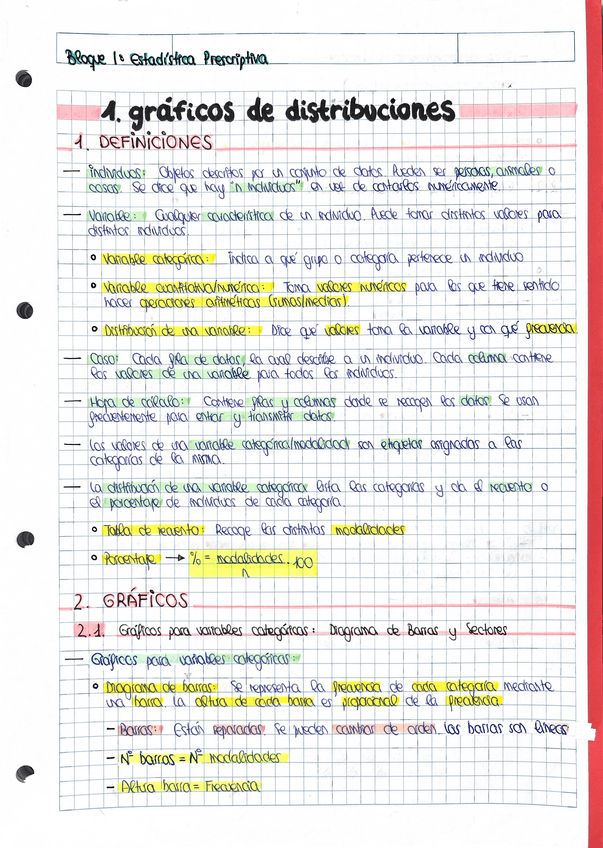 Bloque 1: Estadística Prescriptiva
1. gráficos de distribuciones
1. DEFINICIONES
— Individuos: Objetos descritos por un conjunto de datos. Pueden ser personas, animales o
cosas. Se dice que hay "n individuos" en vez de contarlos numéricamente.
— Variable: Cualquier característica de un individuo. Puede tomar distintos valores para
distintos individuos.
° Variable categórica: Indica a qué grupo o categoría pertenece un individuo
° Variable cuantitativa/numérica: Toma valores numéricos para los que tiene sentido
hacer operaciones aritméticas (sumas/medias).
° Distribución de una variable: Dice qué valores toma la variable y con qué frecuencia.
— Caso: Cada fila de datos, la cual describe a un individuo. Cada columna contiene
los valores de una variable para todos los individuos.
— Hoja de cálculo: Contiene filas y columnas donde se recogen los datos. Se usan
frecuentemente para entrar y transmitir datos.
— Los valores de una variable categórica/modalidad son etiquetas asignadas a las
categorías de la misma.
— La distribución de una variable categórica lista las categorías y da el recuento o
el porcentaje de individuos de cada categoría.
° Tabla de recuento: Recoge las distintas modalidades
° Porcentaje → % = modalidades . 100
n
2. GRÁFICOS
2.1. Gráficos para variables categóricas: Diagrama de Barras y Sectores
— Gráficos para variables categóricas:
° Diagrama de barras: Se representa la frecuencia de cada categoría mediante
una barra. La altura de cada barra es proporcional de la frecuencia.
– Barras: Están separadas. Se pueden cambiar de orden. Las barras son líneas
– Nº barras = Nº modalidades
– Altura barra = Frecuencia